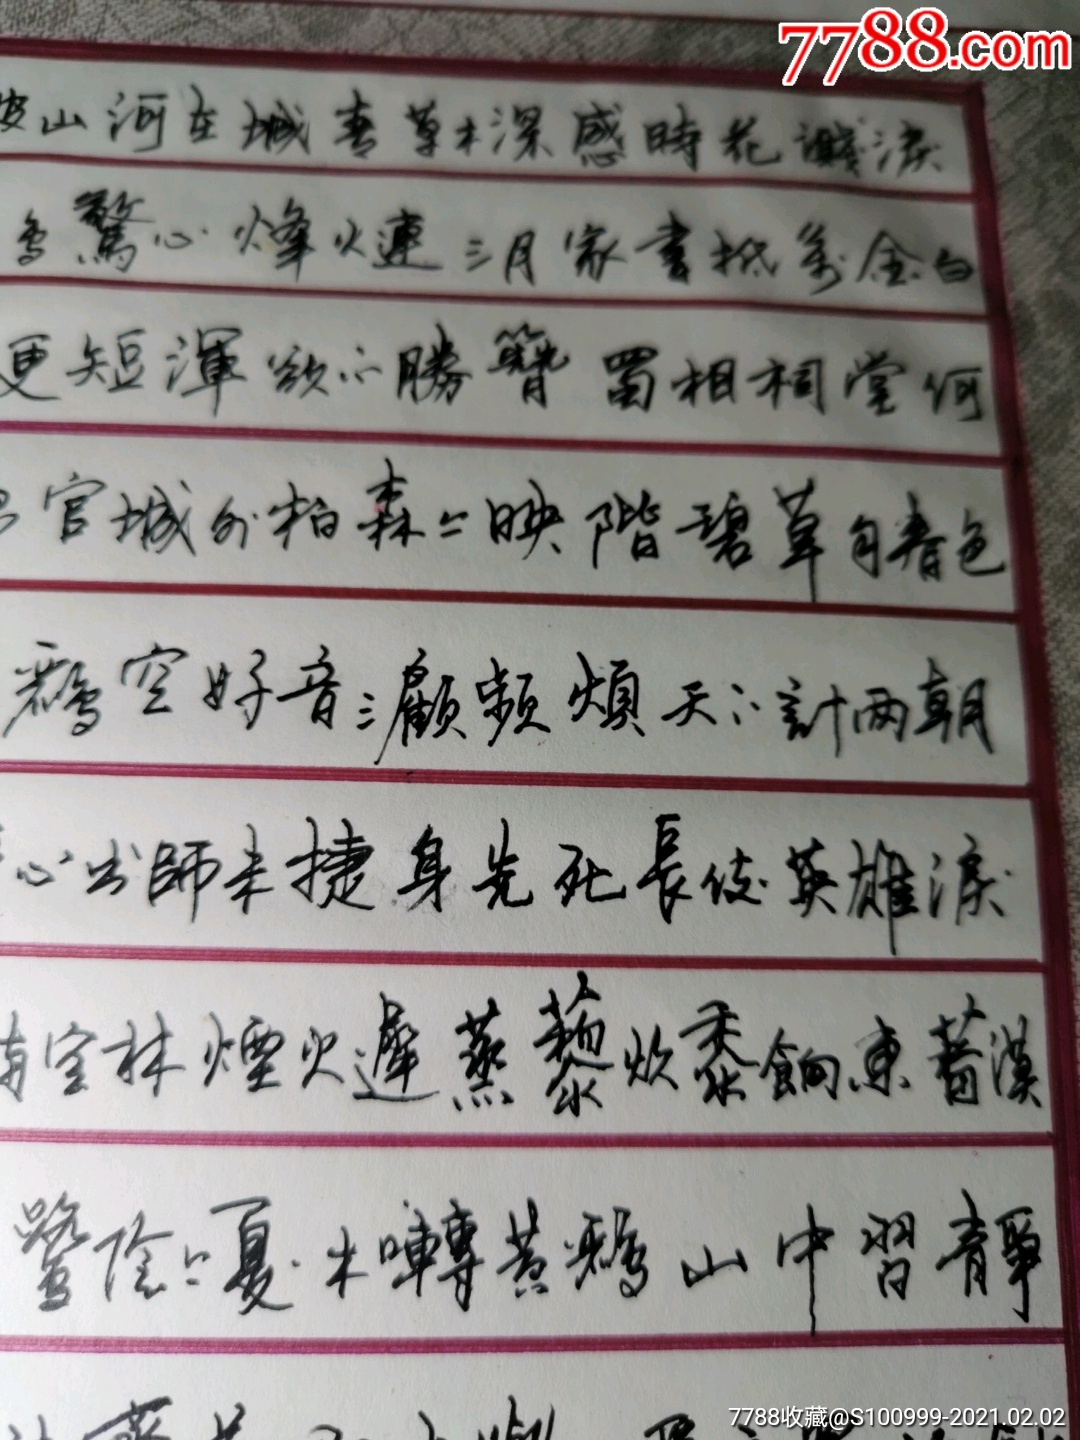 7788.com
破山河在城春草木深感時花濺淚
鳥驚心烽火連三月家書抵萬金白
更短渾欲不勝簪 蜀相祠堂何
官城外柏森々映階碧草自春色
鸝空好音三顧頻煩天下計兩朝
心出師未捷身先死長使英雄淚
空林煙火遲蒸藜炊黍餉東菑漠
鷺陰々夏木囀黃鸝山中習靜
7788收藏@S100999-2021.02.02